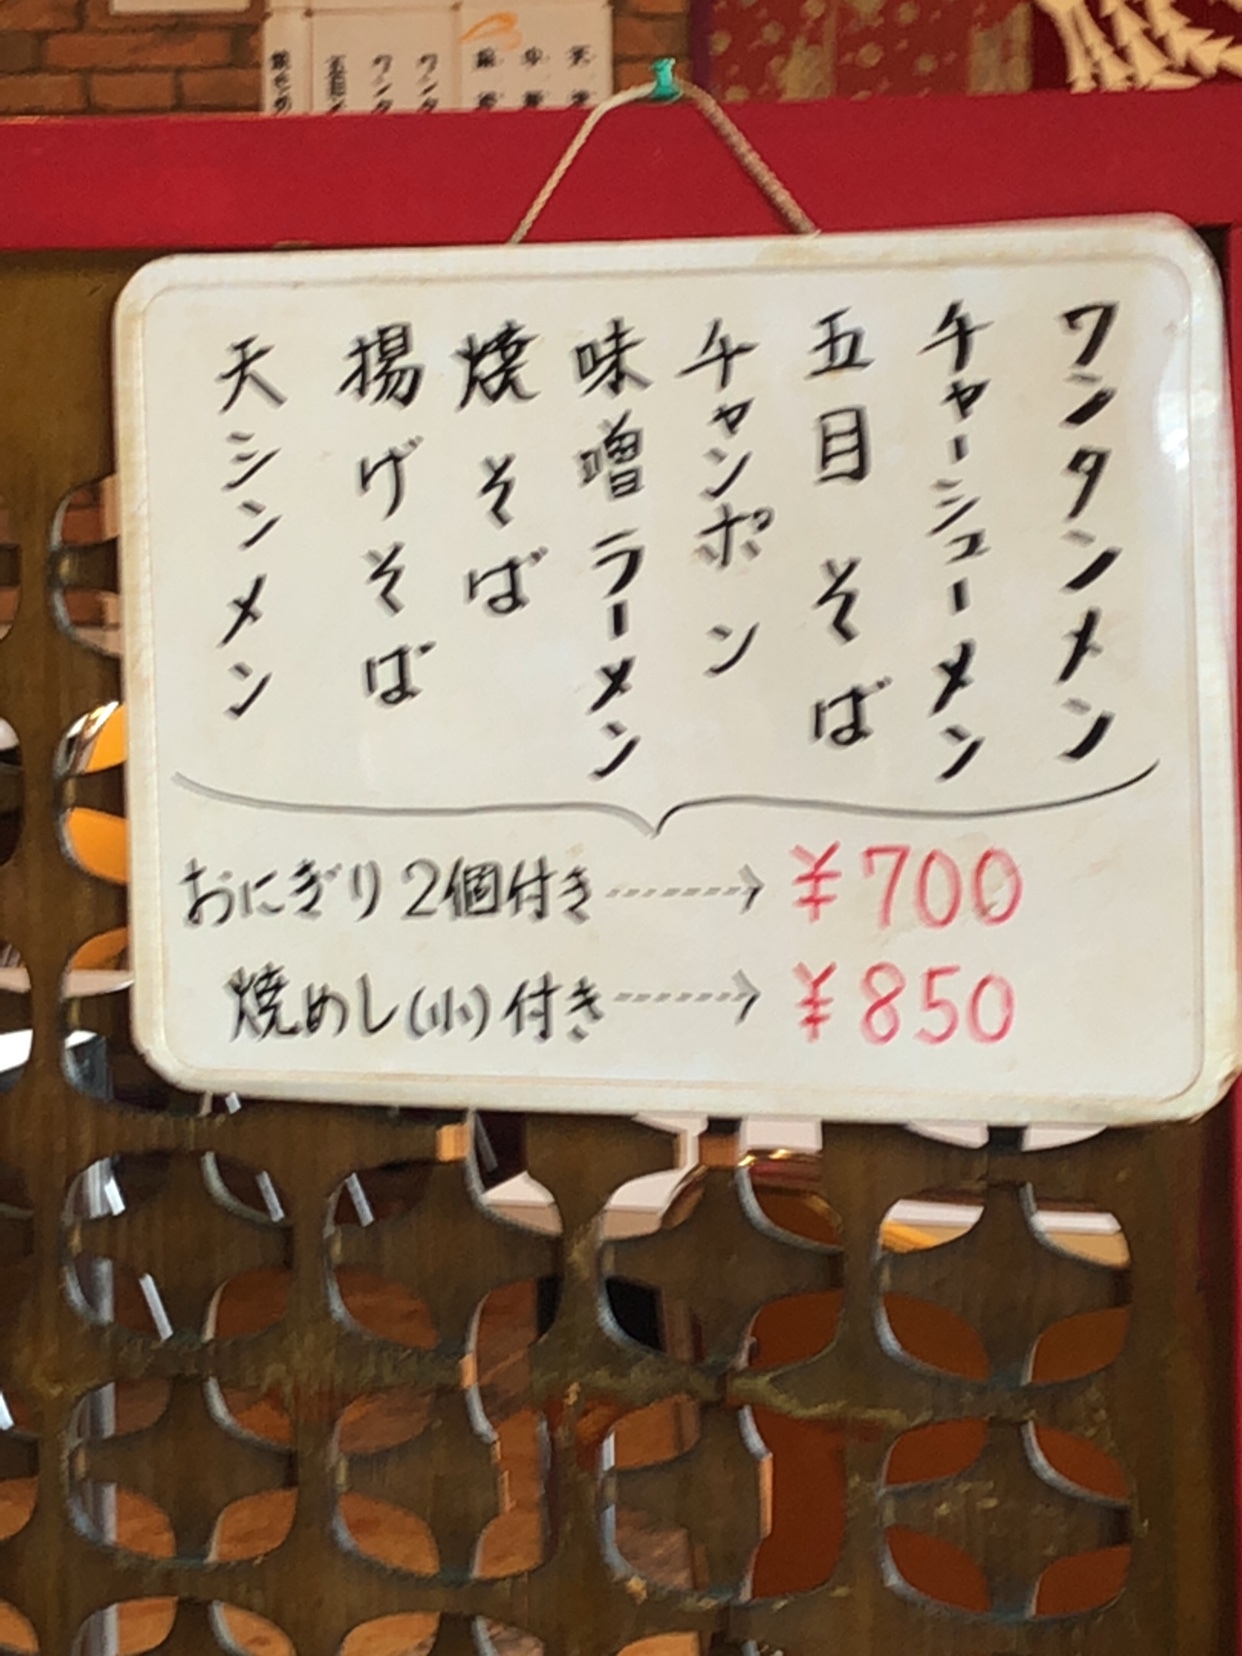 ワンタンメン
チャーシューメン
五目そば
チャンポン
味噌ラーメン
焼そば
揚げそば
天シンメン
おにぎり2個付き-------→ ¥700
焼めし(小)付き-------→ ¥850